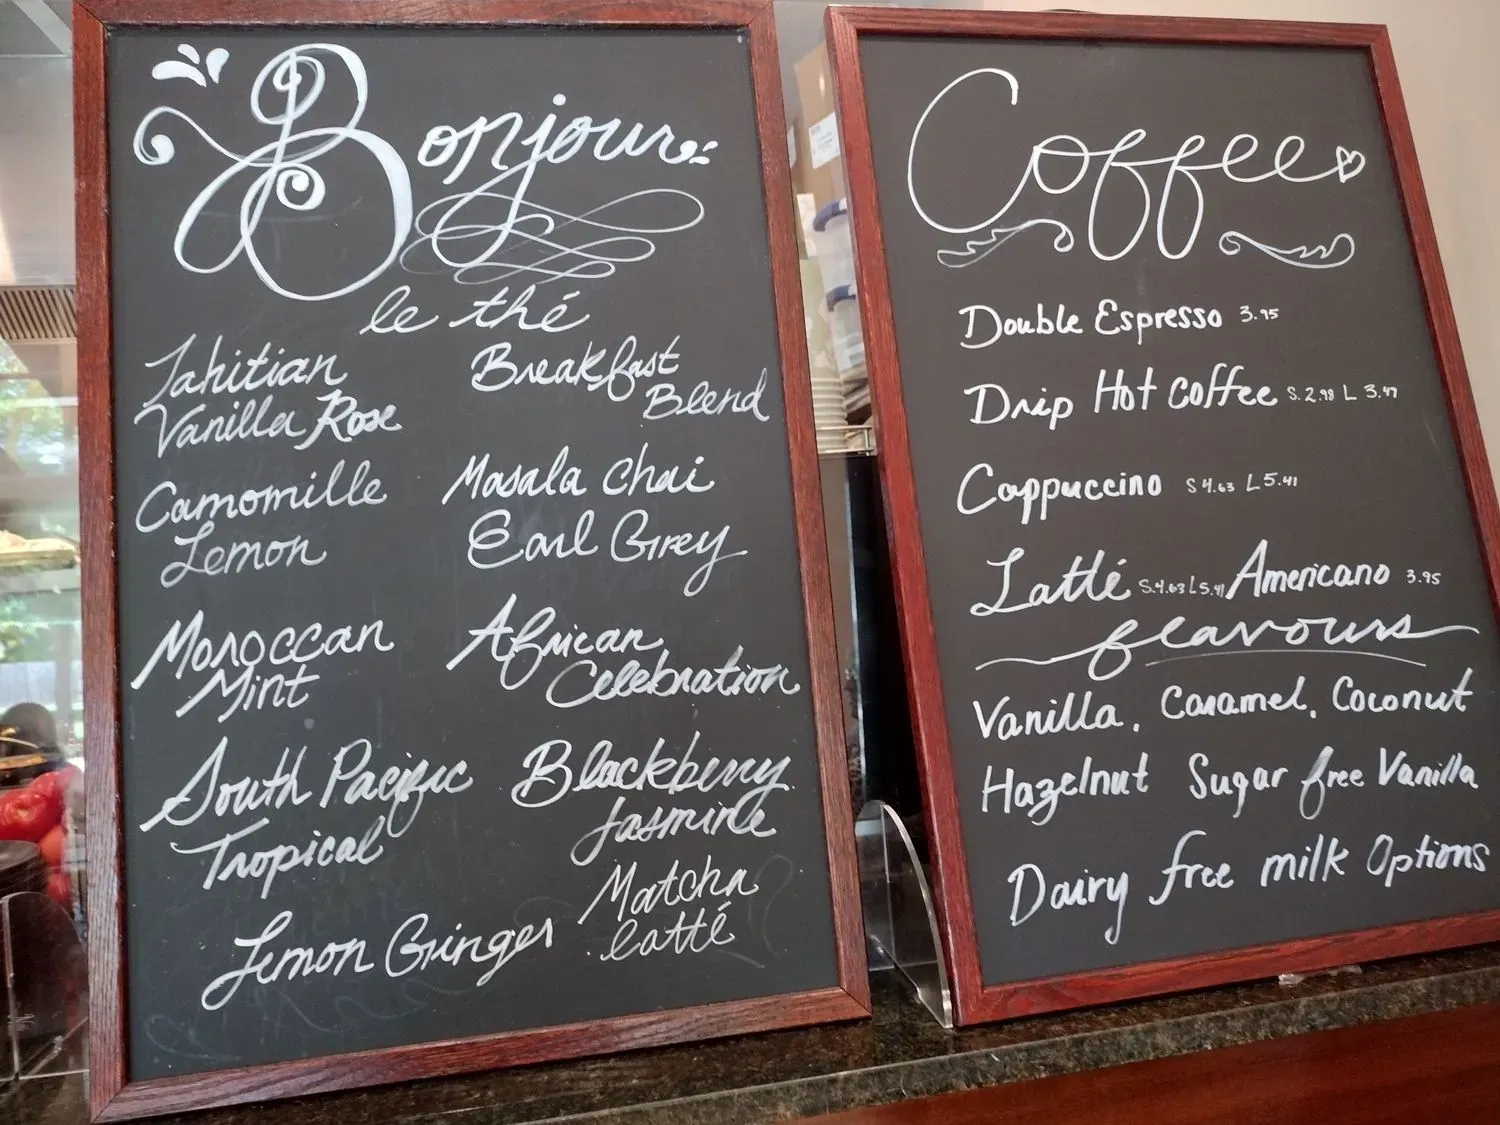 Bonjour
le thé
Tahitian
Vanilla Rose
Camomille
Lemon
Moroccan
Mint
South Pacific
Tropical
Lemon Ginger
Breakfast
Blend
Masala Chai
Earl Grey
African
Celebration
Blackberry
Jasmine
Matcha
latté
Coffee
Double Espresso 3.95
Drip Hot Coffee S. 2.98 L 3.47
Cappuccino S 4.63 L 5.41
Latté S. 4.63 L 5.41 Americano 3.95
flavours
Vanilla, Caramel, Coconut
Hazelnut Sugar free Vanilla
Dairy free milk Options